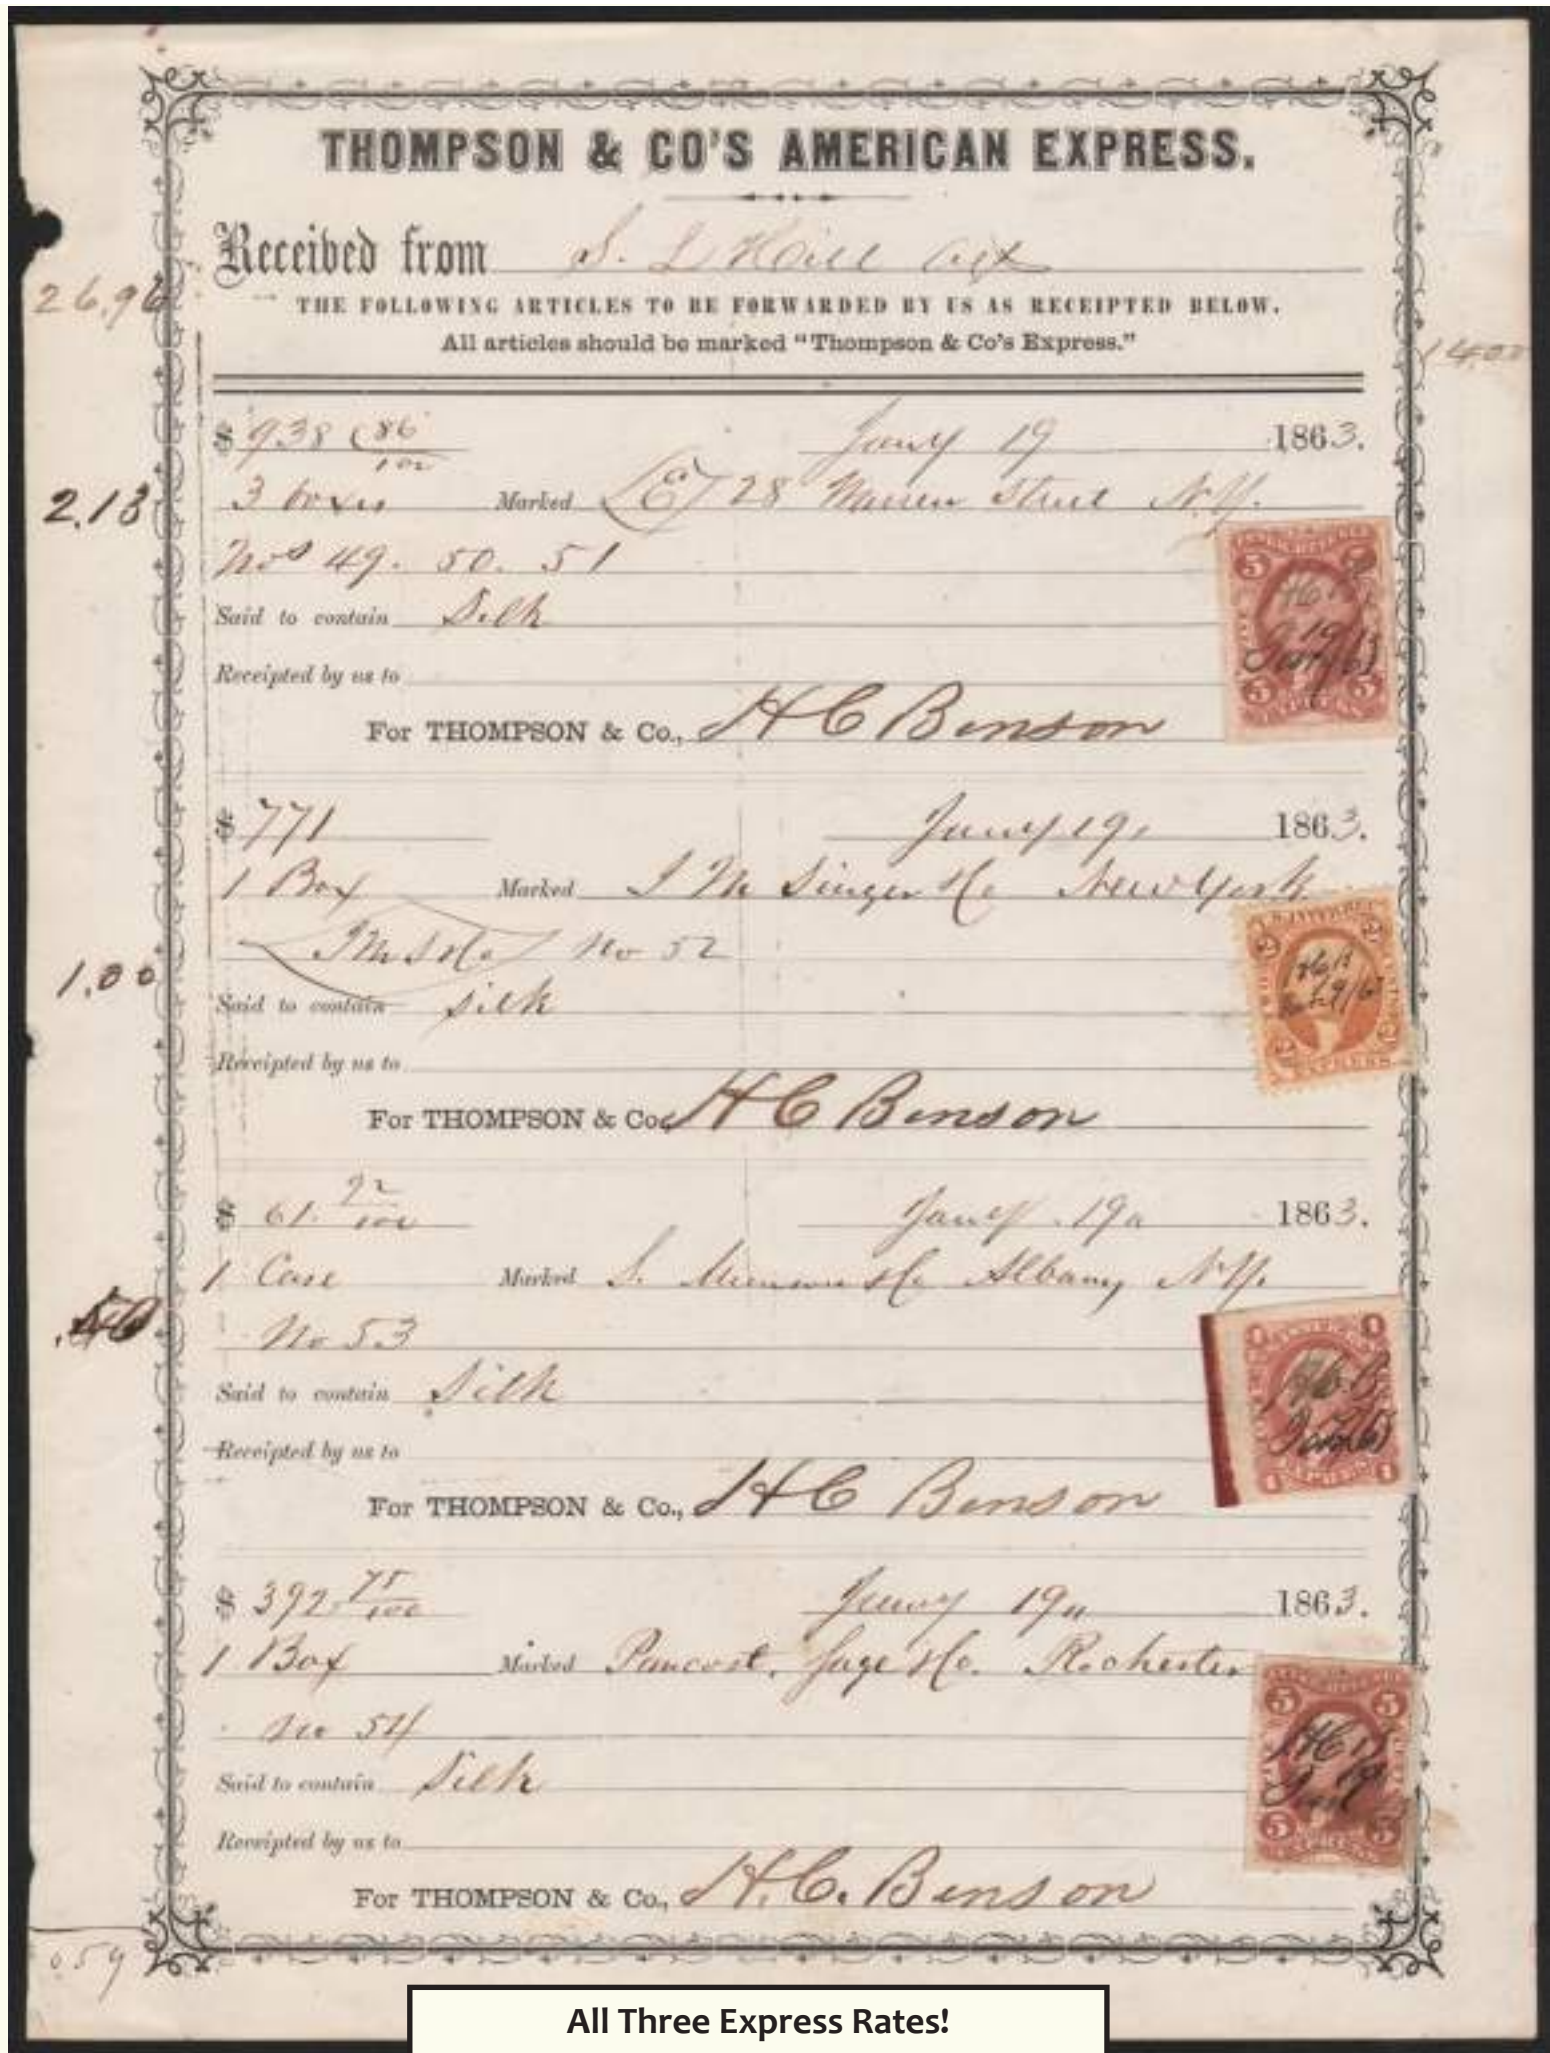 THOMPSON & CO'S AMERICAN EXPRESS.
Received from S. L Hill
THE FOLLOWING ARTICLES TO BE FORWARDED BY US AS RECEIPTED BELOW.
All articles should be marked "Thompson & Co's Express."
26.96
1400
$ 938 86/100 Jany 19 1863.
3 boxes Marked (E) 28 Warren Street N.Y.
2.13
Nos 49. 50. 51
Said to contain Silk
Receipted by us to
For THOMPSON & Co., H C Benson
$ 771 Jany 19, 1863.
1 Box Marked I M Singer &Co New York
I M S &Co No 52
1.00
Said to contain silk
Receipted by us to
For THOMPSON & Co., H C Benson
$ 61. 92/100 Jany 19 1863.
1 Case Marked S. Munson &Co Albany N.Y.
No 53
Said to contain Silk
Receipted by us to
For THOMPSON & Co., H C Benson
$ 392. 75/100 Jany 19 1863.
1 Box Marked Pancost, Sage &Co. Rochester
No 54
Said to contain Silk
Receipted by us to
For THOMPSON & Co., H. C. Benson
All Three Express Rates!